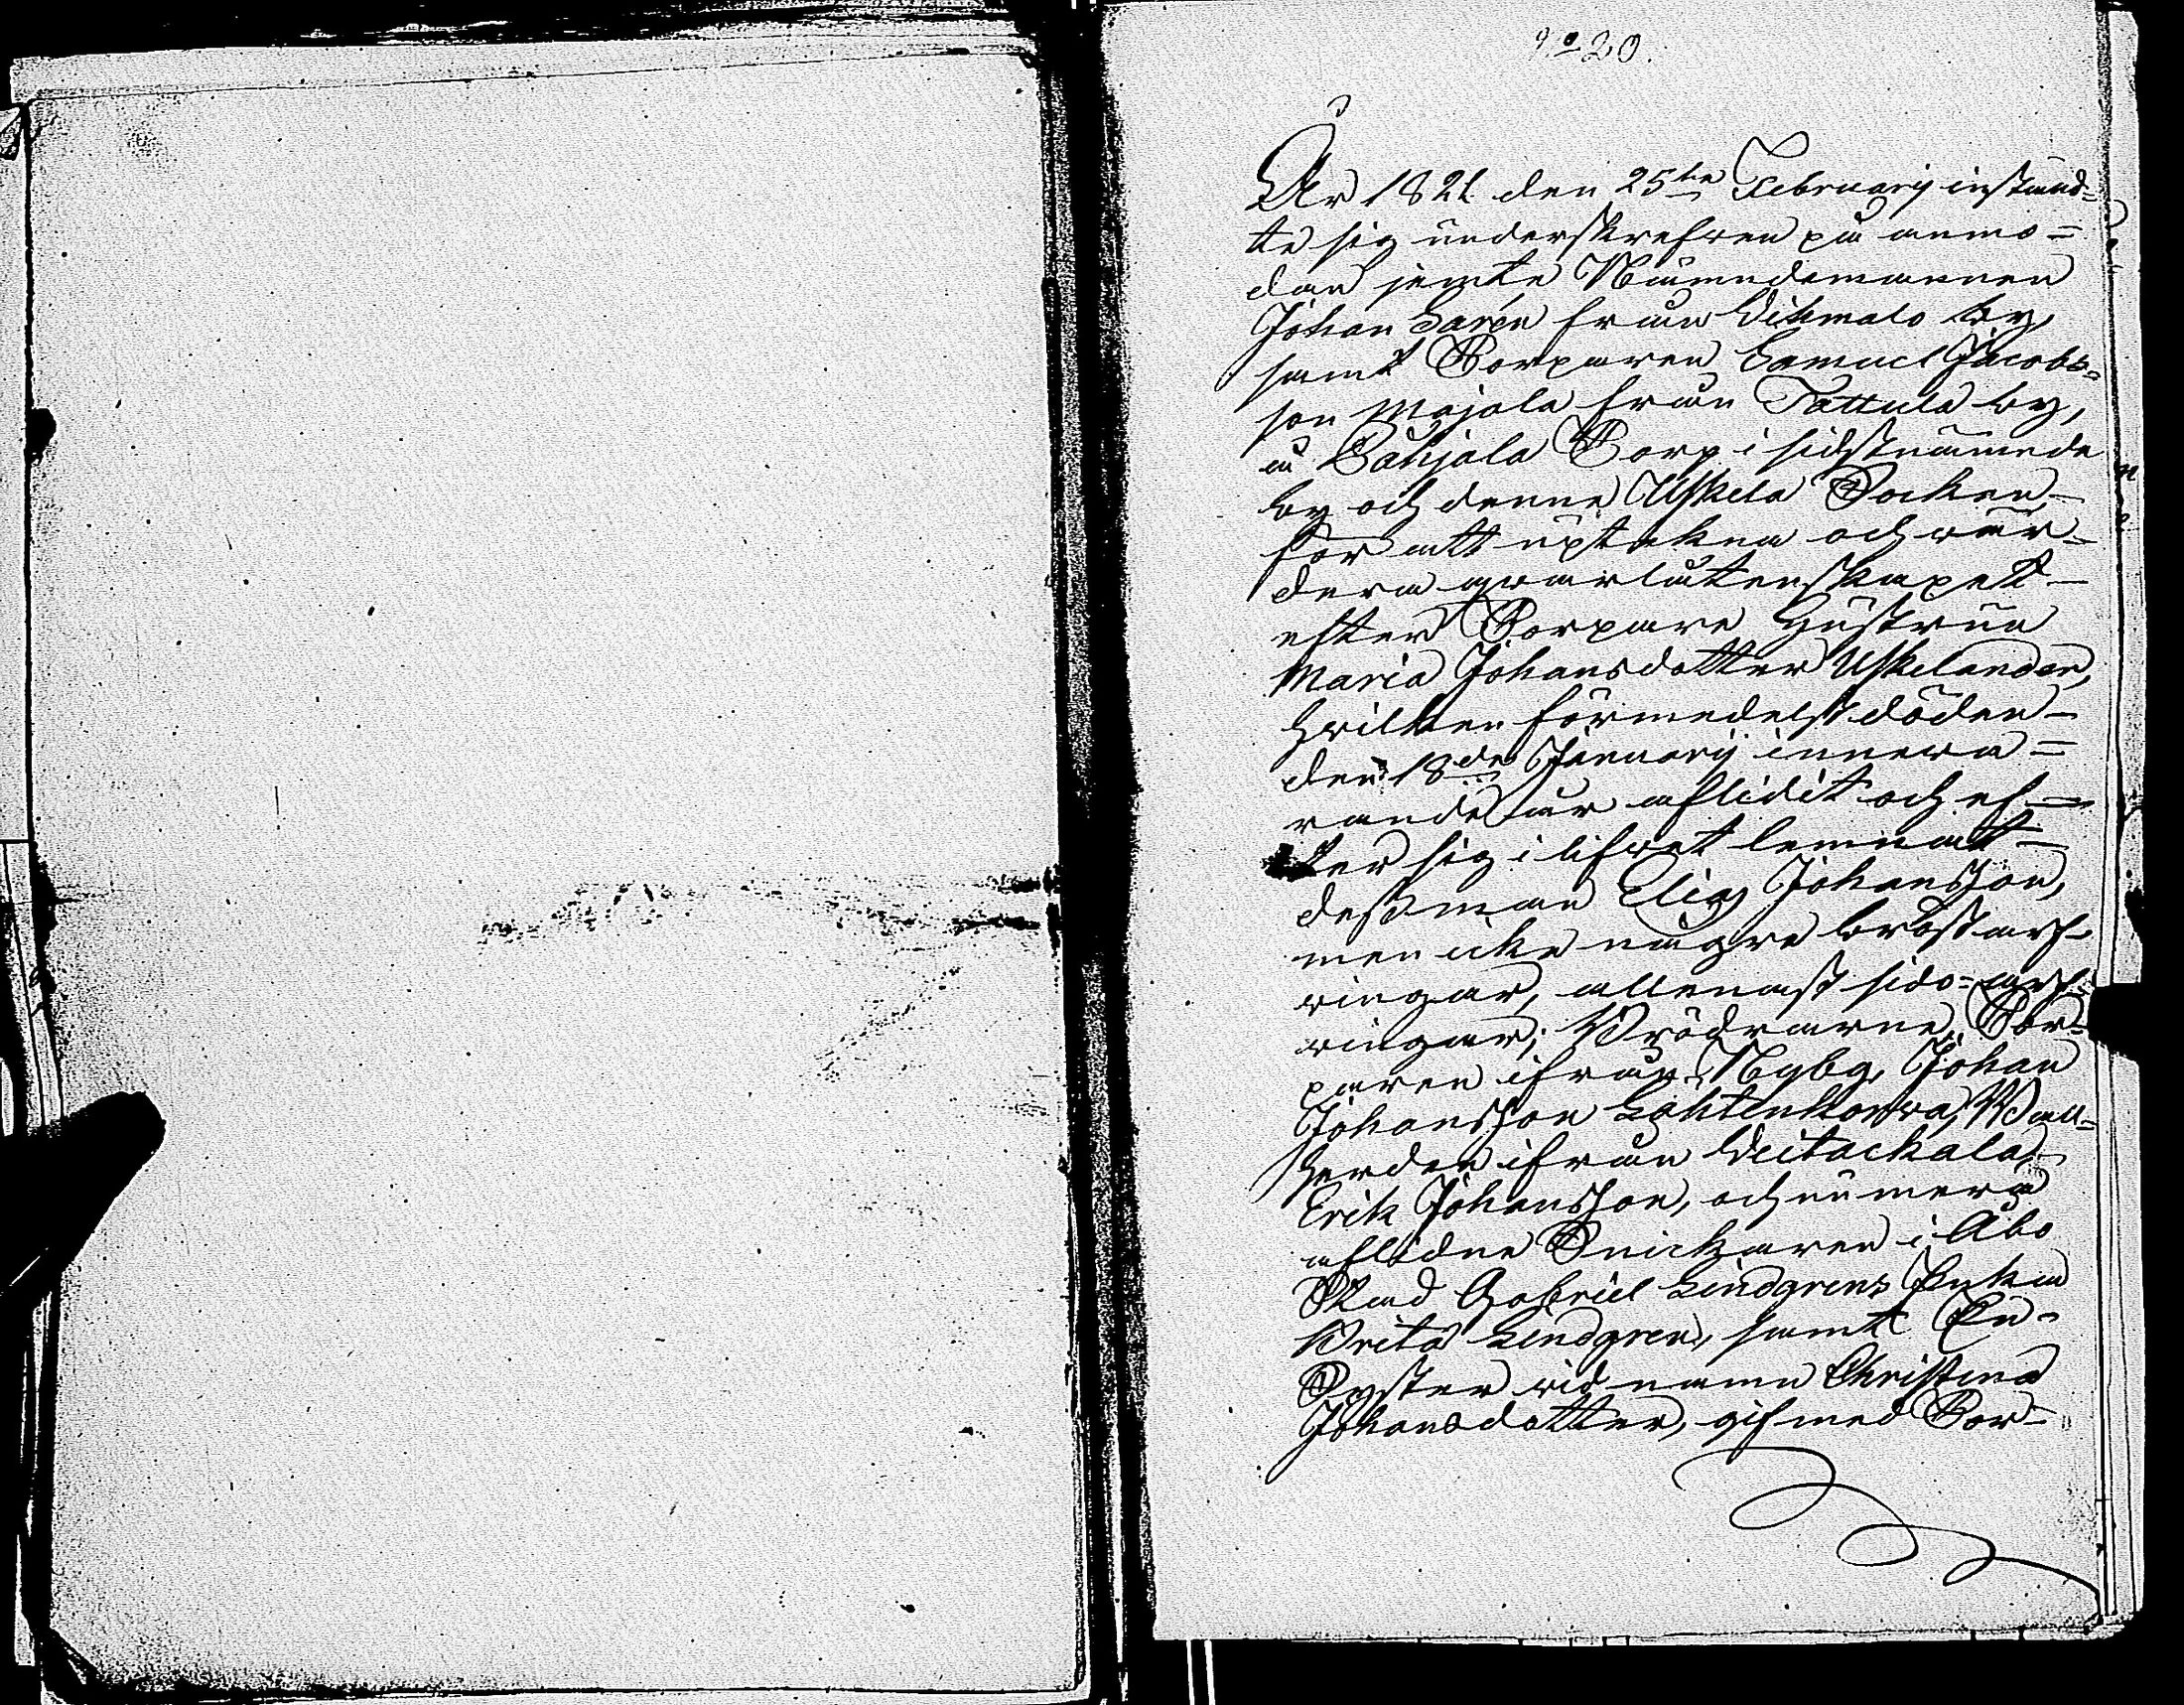 No 20.
År 1821 den 25te Februarij instäld-
te sig underskrefven på anmo=
dan jemte Nämndemannen
Johan Sarén från Vihmalo by,
samt Torparen Samuel Jacobs=
son Majala från Tattula by,
å Påhjala Torp i sidstnämnde
by och denne Uskela Socken
för att uptekna och wär-
dera qvarlåtenskapet
efter Torpare Hustrun
Maria Johansdotter Uskelander,
hvilken förmedelst döden
den 18de Januarij innewa=
rande år aflidit och ef-
ter sig i lifvet lemnat
dess man Elias Johansson,
men icke några bröstarf-
vingar, allenast sido-arf-
vingar; Brödrarne, Tor-
paren ifrån Nyby, Johan
Johansson Lähtenkorva, Wall-
herden ifrån Veitackala
Erik Johansson, och numera
aflidne Snickaren i Åbo
Stad Gabriel Lindgrens Enka
Brita Lindgren, samt En
Syster vid namn Christina
Johansdotter, gif med Tor-